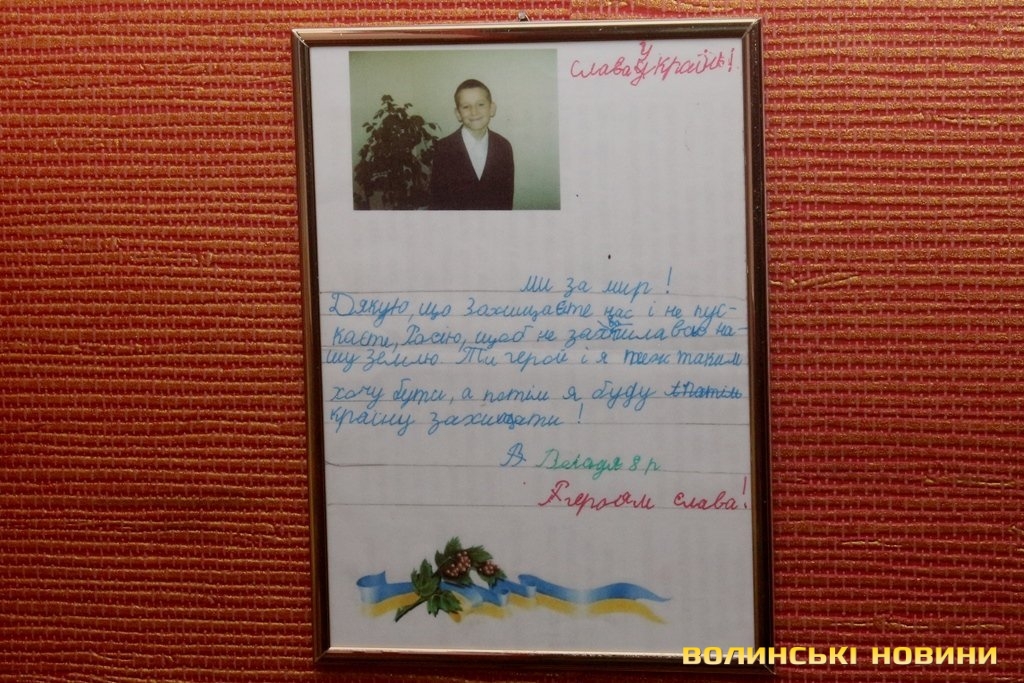 Слава Україні!
Ми за мир!
Дякую, що захищаєте нас і не пус-
каєте, Росію, щоб не захопилавою на-
шу землю. Ти герой і я теж таким
хочу бути, а потім я буду
країну захищати!
Володя 8 р.
Героям слава!
ВОЛИНСЬКІ НОВИНИ